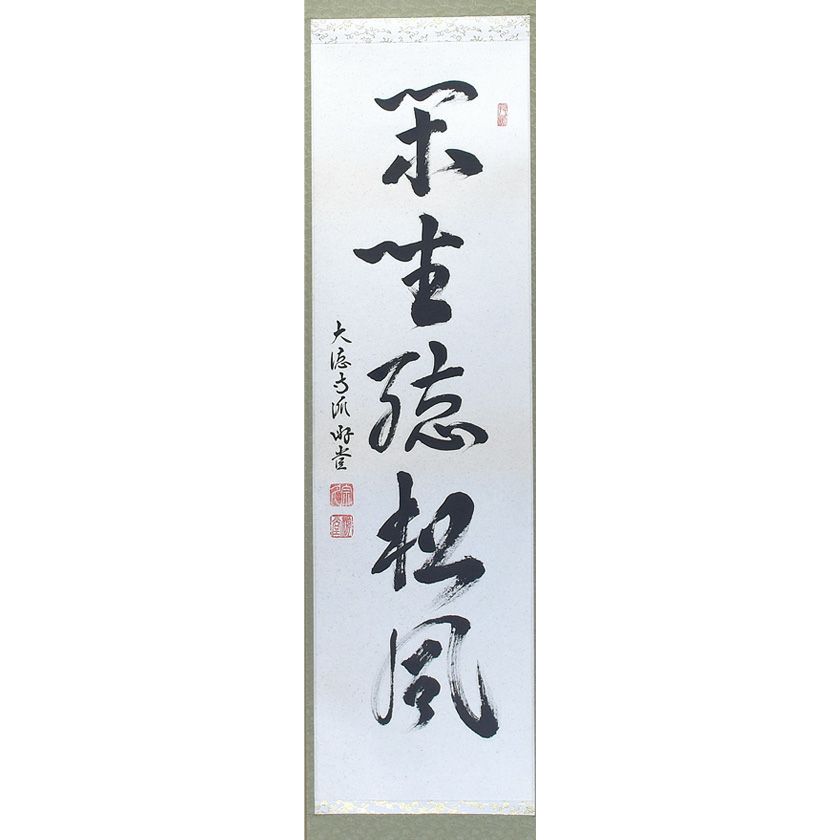 閑坐聴松風
大徳寺派 明堂